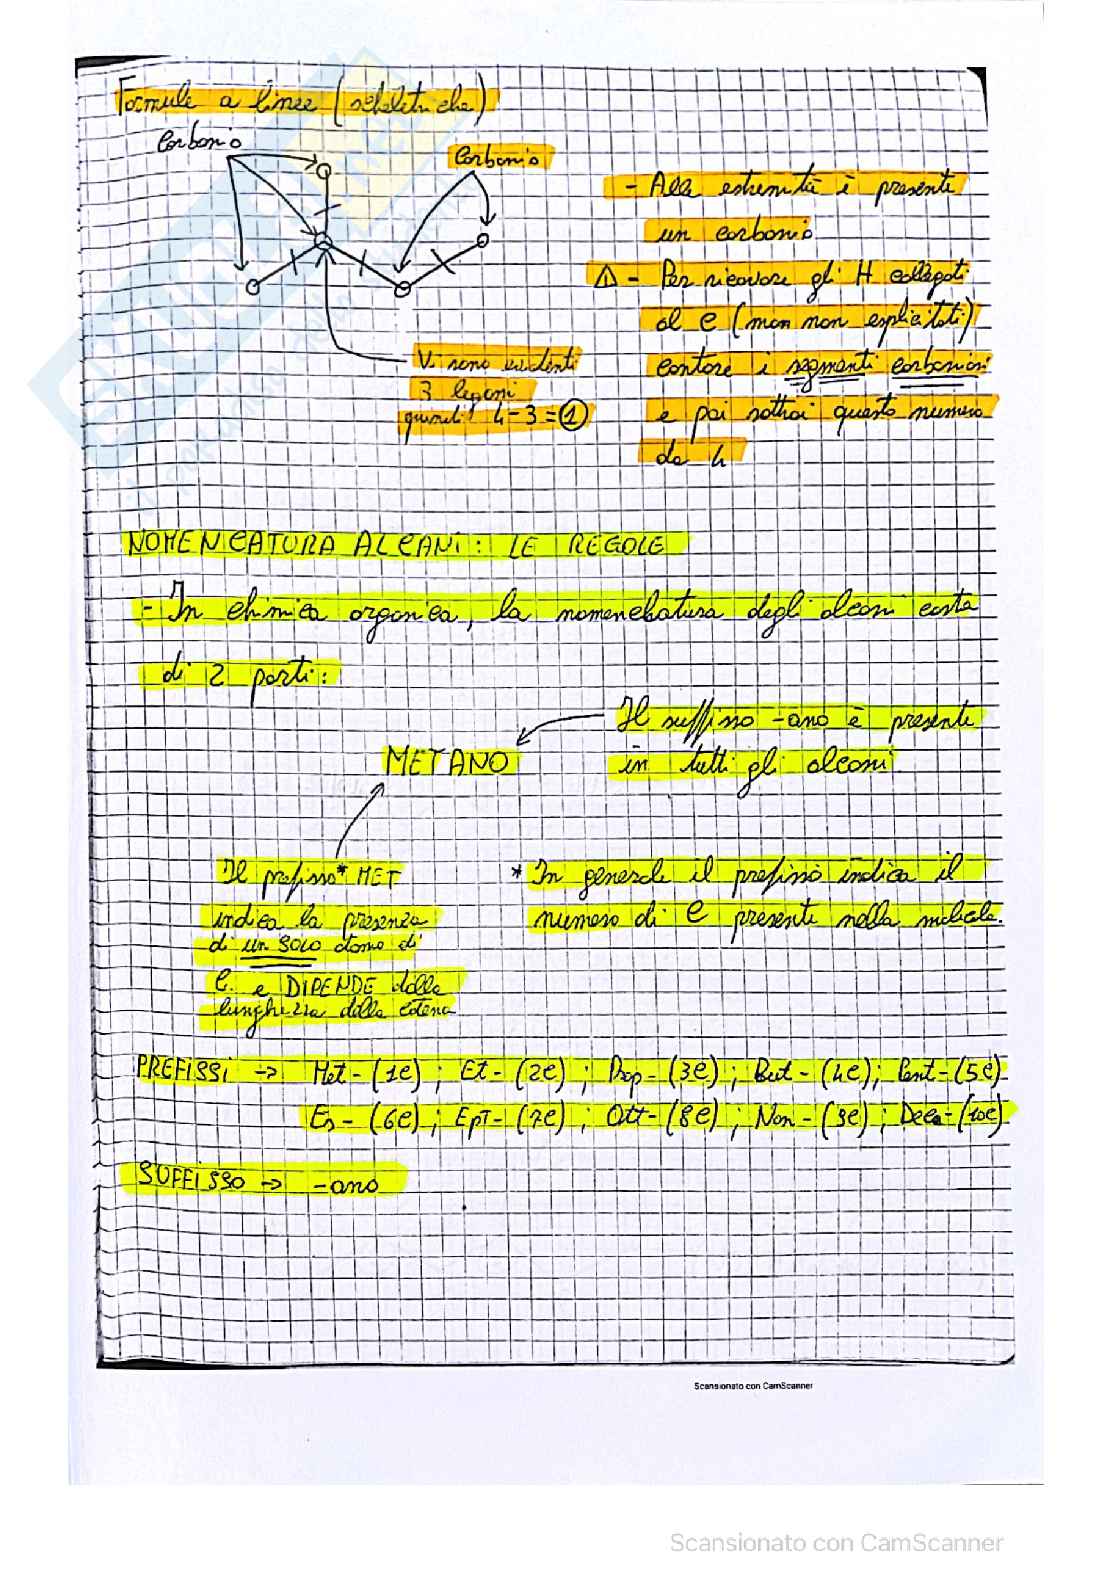 Formule a linee (scheletriche)
Carbonio
Carbonio
- Alle estremità è presente
un carbonio
⚠ - Per ricavare gli H collegati
al C (man non esplicitati)
contare i segmenti carboniosi
e poi sottrai questo numero
da 4
Vi sono evidenti
3 legami
quindi 4-3=1
NOMENCATURA ALCANI: LE REGOLE
- In chimica organica, la nomenclatura degli alcani costa
di 2 parti:
Il suffisso -ano è presente
in tutti gli alcani
METANO
Il prefisso* MET
indica la presenza
di un SOLO atomo di
C. e DIPENDE dalla
lunghezza della catena
* In generale il prefisso indica il
numero di C presente nella molecola.
PREFISSI → Met-(1C) ; Et-(2C) ; Prop-(3C) ; But-(4C) ; Pent-(5C)
Es-(6C) ; Ept-(7C) ; Ott-(8C) ; Non-(9C) ; Deca-(10C)
SUFFISSO → -ano
Scansionato con CamScanner
Scansionato con CamScanner